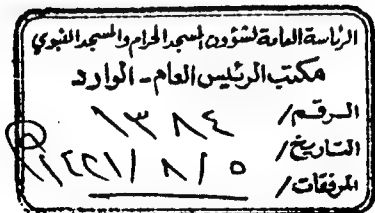 الرئاسة العامة لشؤون المسجد الحرام والمسجد النبوي
مكتب الرئيس العام - الوارد
الرقم / ١٣٨٤
التاريخ / ٥ / ٨ / ١٤٢١
المرفقات /